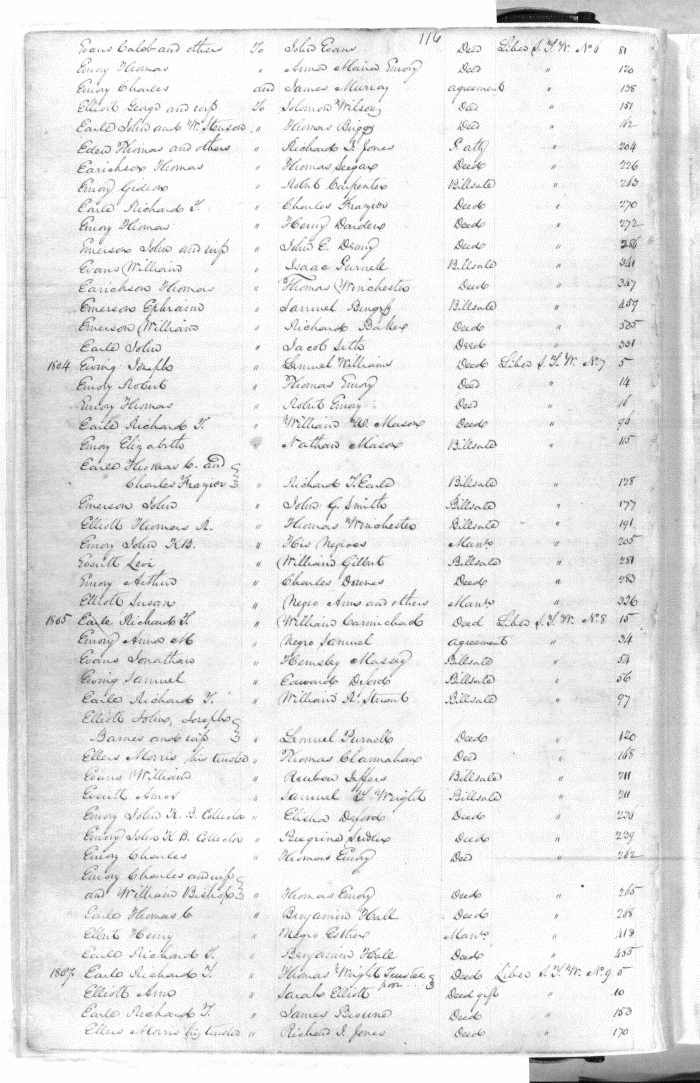 116
Evans Caleb and others To John Evans Deed Liber S. T. W. No 6 81
Emory Thomas " Anna Maria Emory Deed " 120
Emory Charles and James Murray agreement " 138
Elliott George and wife To Solomon Wilson Deed " 151
Earle John and Wm " Thomas Briggs Deed " 162
Eden Thomas and others " Richard I. Jones P. atty " 204
Earickson Thomas " Thomas Seegar Deed " 226
Emory Gideon " Robert Carpenter Billsale " 263
Earle Richard T. " Charles Frazier Deed " 270
Emory Thomas " Henry Darden Deed " 272
Emerson John and wife " John E. Denny Deed "
Evans William " Isaac Purnell Billsale " 341
Earickson Thomas " Thomas Winchester Deed " 347
Emerson Ephraim " Samuel Billsale " 459
Emerson William " Richard Baker Deed " 505
Earle John " Jacob Seth Deed " 531
1804 Ewing Joseph " Lemuel Williams Deed Liber S. T. W. No 7 5
Emory Robert " Thomas Emory Deed " 14
Emory Thomas " Robert Emory Deed " 16
Earle Richard T. " William W. Mason Deed " 96
Emory Elizabeth " Nathan Mason Billsale " 115
Earle Thomas C. and
Charles Frazier " Richard T. Earle Billsale " 128
Emerson John " John G. Smith Billsale " 177
Elliott Thomas R. " Thomas Winchester Billsale " 191
Emory John K. B. " His Negroes Mano " 205
Everitt Levi " William Gilbert Billsale " 281
Emory Arthur " Charles Downes Deed " 283
Elliott Susan " Negro Ann and others Mano " 336
1805 Earle Richard T. " William Carmichael Deed Liber S. T. W. No 8 15
Emory Anna M " Negro Samuel agreement " 34
Evans Jonathan " Hemsley Massey Billsale " 54
Ewing Samuel " Edward Deford Billsale " 56
Earle Richard T. " William R. Stewart Billsale " 97
Elliott John, Joseph
Barnes and wife " Lemuel Purnell Deed " 120
Ellers Morris his trustee " Thomas Clannahan Deed " 168
Evans William " Reuben Billsale " 211
Everitt Amos " Samuel T. Wright Billsale " 211
Emory John K. B. Collector " Elisha Deford Deed " 236
Emory John K B. Collector " Peregrine Deed " 239
Emory Charles " Thomas Emory Deed " 262
Emory Charles and wife
and William Bishop " Thomas Emory Deed " 265
Earle Thomas C " Benjamin Hall Deed " 268
Elbert Henry " Negro Esther Mano " 413
Earle Richard T. " Benjamin Hall Deed " 455
1807 Earle Richard T. " Thomas Wright Trustee poor Deed Liber S. T. W. No 9 5
Elliott Ann " Sarah Elliott Deed gift " 10
Earle Richard T. " James Browne Deed " 153
Ellers Morris his trustee " Richard I. Jones Deed " 170